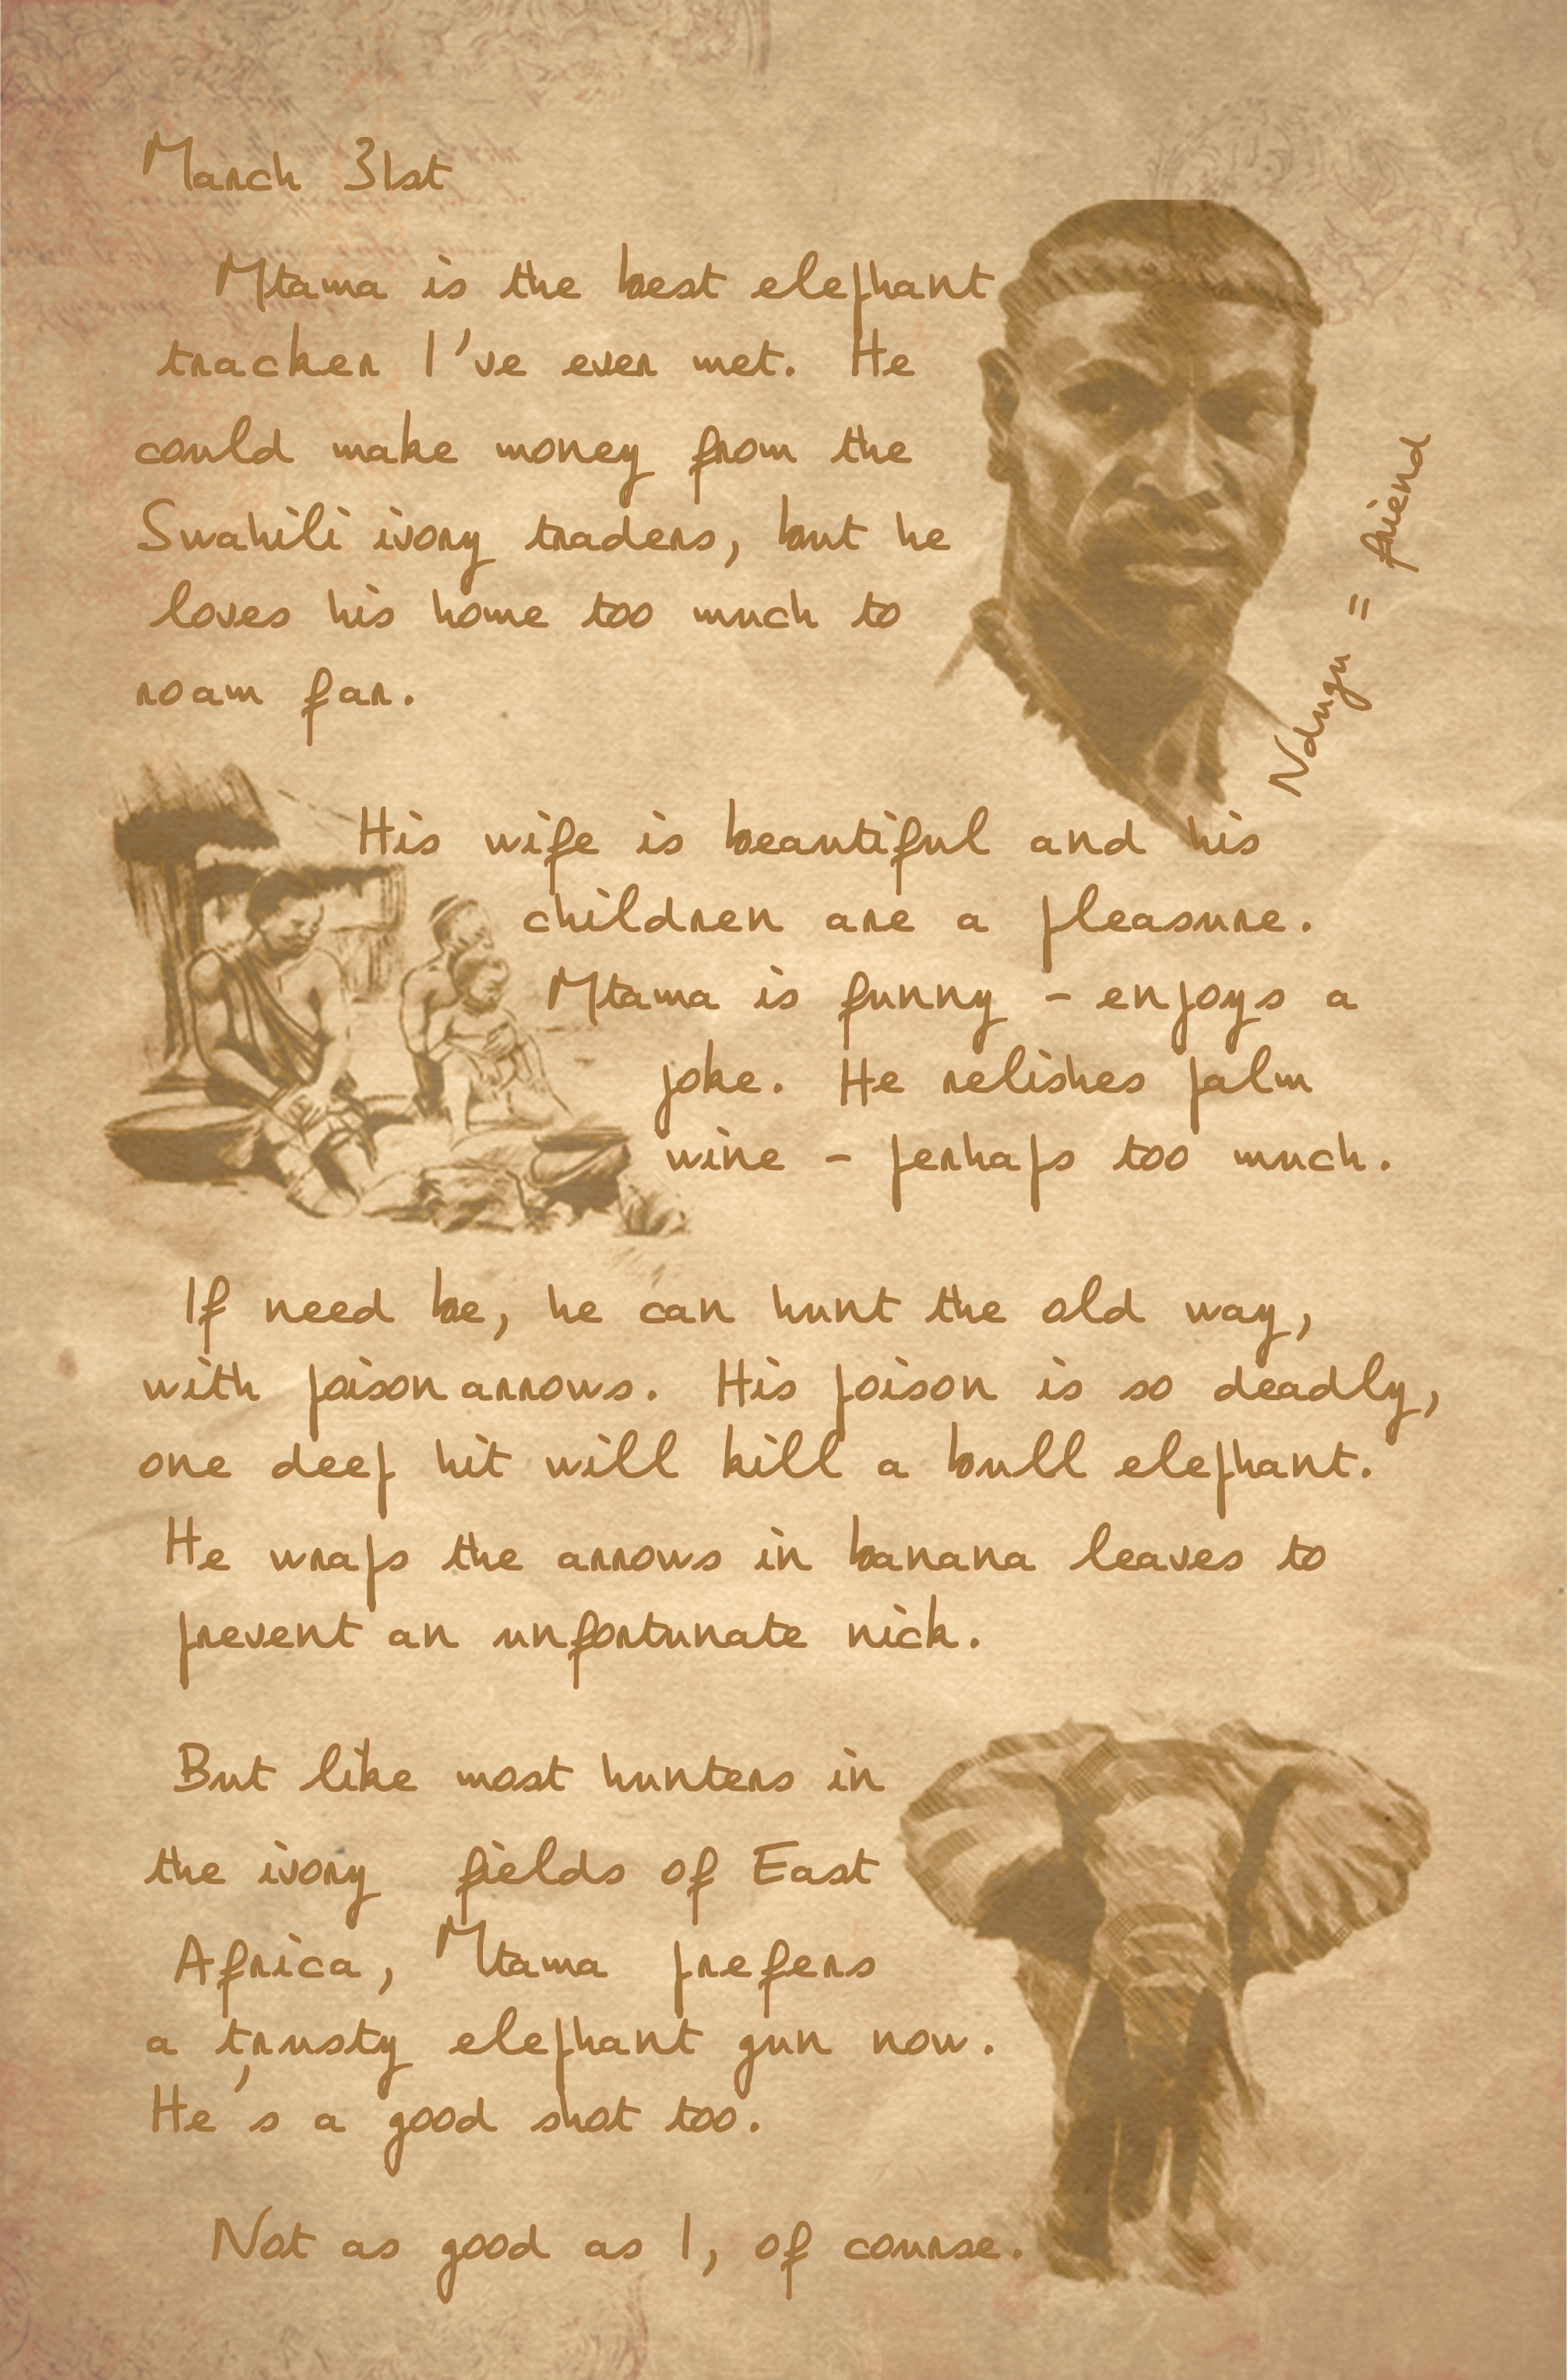 March 31st
Mtama is the best elephant
tracker I've ever met. He
could make money from the
Swahili ivory traders, but he
loves his home too much to
roam far.
Ndugu = friend
His wife is beautiful and his
children are a pleasure.
Mtama is funny - enjoys a
joke. He relishes palm
wine - perhaps too much.
If need be, he can hunt the old way,
with poison arrows. His poison is so deadly,
one deep hit will kill a bull elephant.
He wraps the arrows in banana leaves to
prevent an unfortunate nick.
But like most hunters in
the ivory fields of East
Africa, Mtama prefers
a trusty elephant gun now.
He's a good shot too.
Not as good as I, of course.